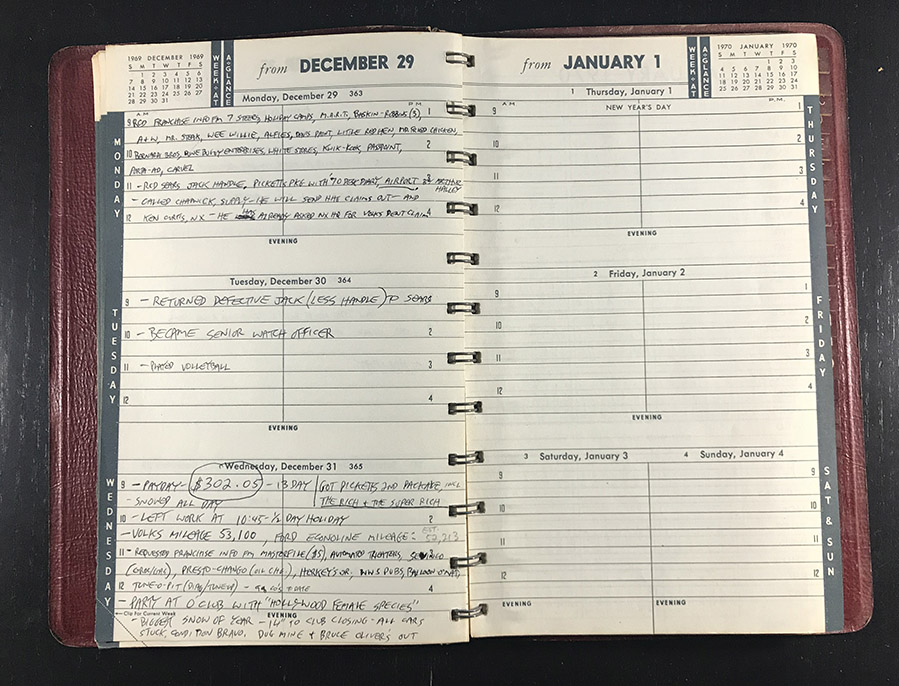 1969 DECEMBER 1969
S M T W T F S
1 2 3 4 5 6
7 8 9 10 11 12 13
14 15 16 17 18 19 20
21 22 23 24 25 26 27
28 29 30 31
WEEK•AT
A•GLANCE
from DECEMBER 29
Monday, December 29 363
A M
P.M.
MONDAY
9 REQ FRANCHISE INFO FM 7 STEERS, HOLIDAY CAMPS, M.O.R.T. BASKIN-ROBBINS (5) 1
A+W, MR. STEAK, WEE WILLIE, ALFIES, DAVIS PAINT, LITTLE RED HEN, MR FRIED CHICKEN,
10 BONANZA BROS, DUNE BUGGY ENTERPRISES, WHITE STORES, KWIK-KOOK, PASSPORT, 2
PORTA-AD, CARVEL
11 - RCD SEARS JACK HANDLE, PICKETTS PKG WITH '70 DESK DIARY, AIRPORT BY ARTHUR HAILEY 3
- CALLED CHADWICK, SUPPLY - HE WILL SEND HHE CLAIMS OUT - AND
12 KEN CURTIS, NX - HE HAS ALREADY ASKED NX HQ FOR VOLKS DENT CLAIM 4
EVENING
Tuesday, December 30 364
TUESDAY
9 - RETURNED DEFECTIVE JACK (LESS HANDLE) TO SEARS
10 - BECAME SENIOR WATCH OFFICER 2
11 - PLAYED VOLLEYBALL 3
12 4
EVENING
Wednesday, December 31 365
WEDNESDAY
9 - PAYDAY - $302.05 - 13 DAY GOT PICKETTS 2ND PACKAGE, INCL
- SNOWED ALL DAY THE RICH + THE SUPER RICH
10 - LEFT WORK AT 10:45 - 1/2 DAY HOLIDAY 2
- VOLKS MILEAGE 53,100, FORD ECONOLINE MILEAGE: EST. 52,213
11 - REQUESTED FRANCHISE INFO FM MASTERFILE (35), AUTOMATED THEATERS, 3
PRESTO-CHANGO (OIL CHG), HORKEY'S OR. N.W.S DUBS, BALLOON O'MAT,
12 TUNE-O-PIT (DIAG/TUNEUP) 4
- PARTY AT O CLUB WITH "HOLLYWOOD FEMALE SPECIES"
Clip For Current Week
EVENING
- BIGGER SNOW OF YEAR - 14" TO CLUB CLOSING - ALL CARS
STUCK, CONDITION BRAVO. DUG MINE + BRUCE OLIVER'S OUT
from JANUARY 1
WEEK•AT
A•GLANCE
1970 JANUARY 1970
S M T W T F S
1 2 3
4 5 6 7 8 9 10
11 12 13 14 15 16 17
18 19 20 21 22 23 24
25 26 27 28 29 30 31
1 Thursday, January 1
A M
NEW YEAR'S DAY
P.M.
THURSDAY
9 1
10 2
11 3
12 4
EVENING
2 Friday, January 2
FRIDAY
9 1
10 2
11 3
12 4
EVENING
3 Saturday, January 3
4 Sunday, January 4
SAT & SUN
9 9
10 10
11 11
12 12
EVENING
EVENING